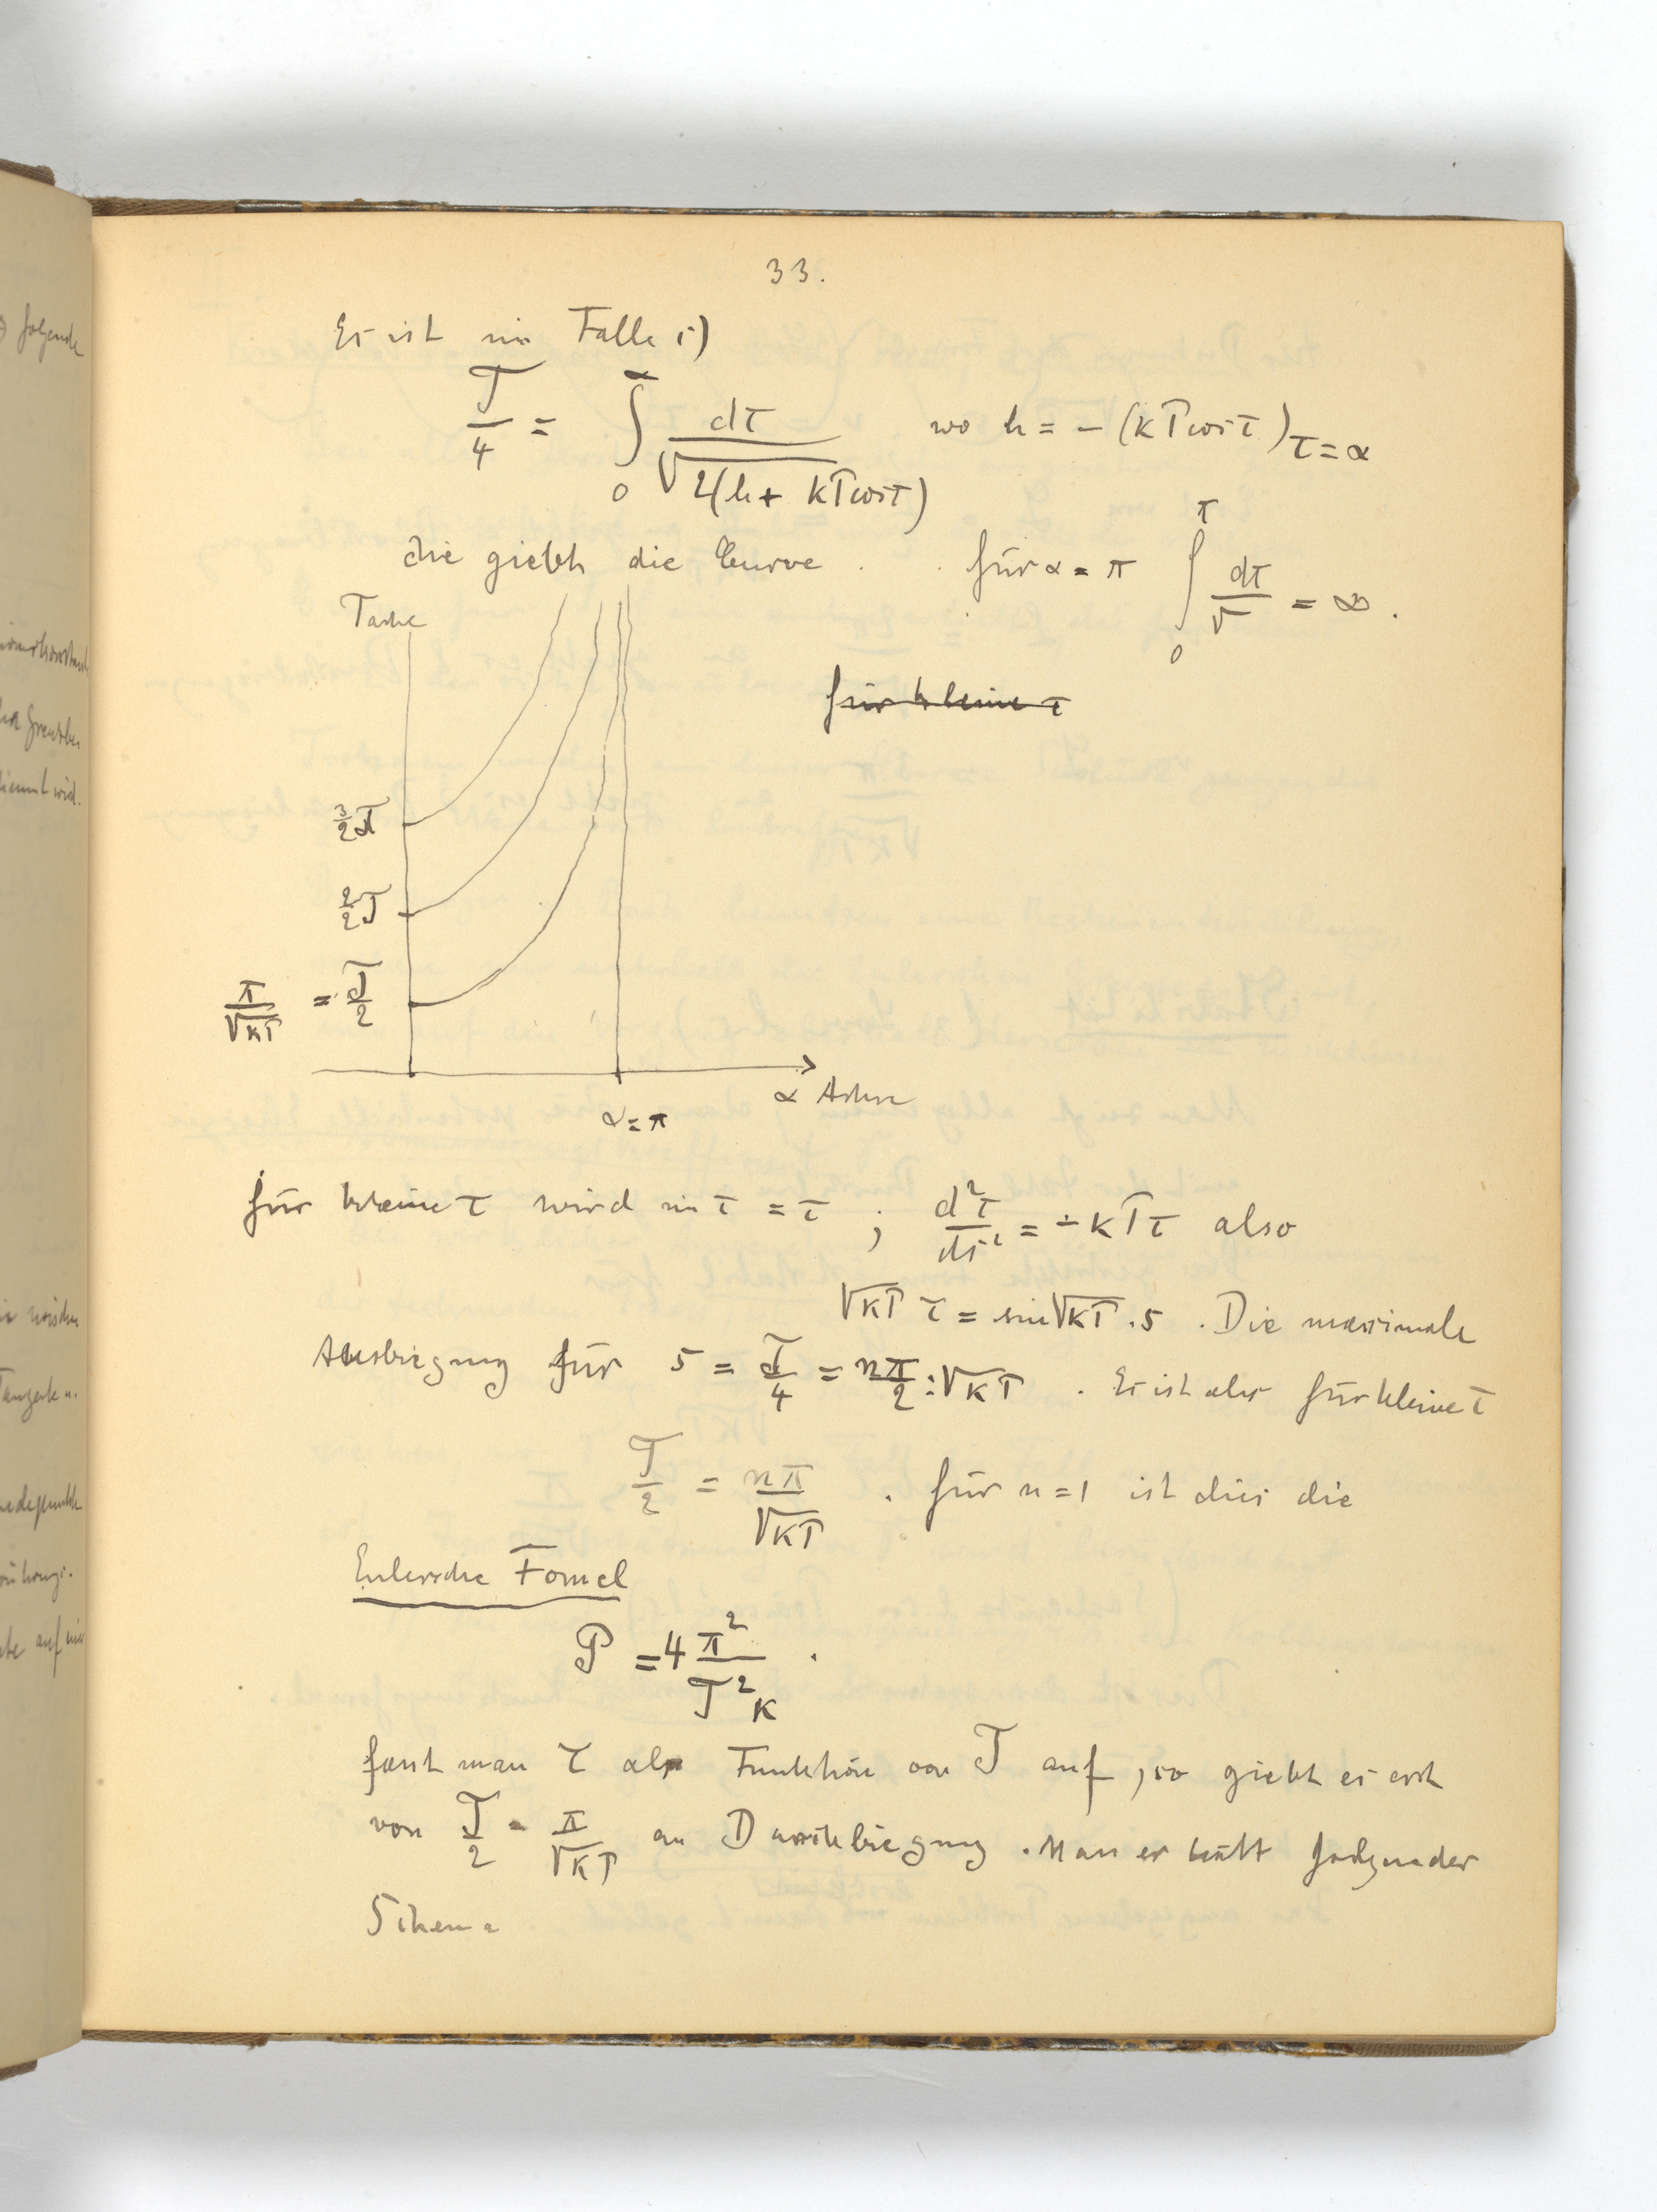 folgende
33.
Es ist im Falle 1)
T/4 = ∫₀^α dτ/√2(h + kP cos τ) wo h = - (kP cos τ)τ=α
die giebt die Curve . . für α = π ∫₀^π dτ/√ = ∞ .
T
für kleine τ
3/2 T
2/2 T
π/√kP = T/2
α Achse
α = π
für kleine τ wird sin τ = τ ; d²τ/ds² = - kPτ also
√kP τ = sin √kP . s . Die maximale
Ausbiegung für s = T/4 = nπ/2 : √kP . Es ist aber für kleine τ
T/2 = nπ/√kP . für n = 1 ist dies die
Eulersche Formel
P = 4 π²/T²k .
fasst man τ als Funktion von T auf, so giebt es erst
von T/2 = π/√kP an Durchbiegung . Man erhält folgender
Schema